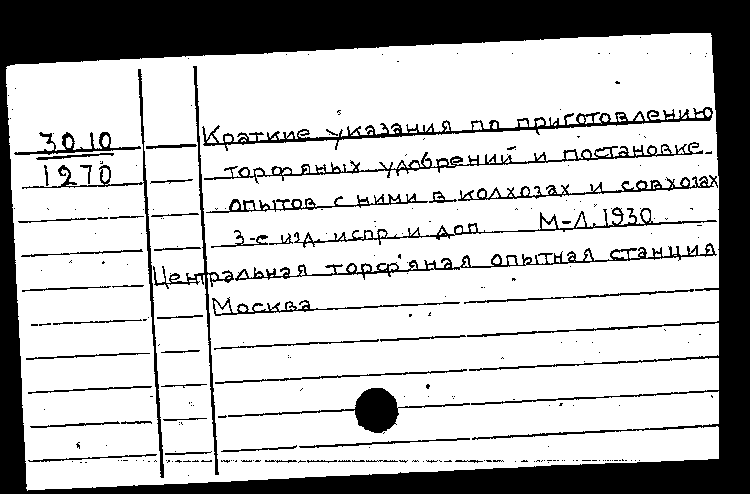 30.10
1270
Краткие указания по приготовлению
торфяных удобрений и постановке
опытов с ними в колхозах и совхозах
3-е изд. испр. и доп. М-Л. 1930
Центральная торф'яная опытная станция
Москва